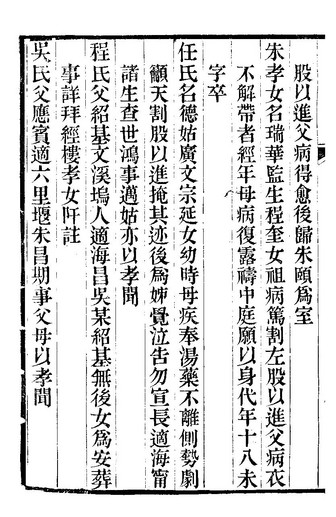 股以進父病得愈後歸朱頤爲室
朱孝女名瑞華監生程奎女祖病篤割左股以進父病衣
不解帶者經年母病復露禱中庭願以身代年十八未
字卒
任氏名德姑廣文宗延女幼時母疾奉湯藥不離側勢劇
籲天割股以進掩其迹後爲姊覺泣告勿宣長適海甯
諸生查世鴻事邁姑亦以孝聞
程氏父紹基文溪塢人適海昌吳某紹基無後女爲安葬
事詳拜經樓孝女阡註
吳氏父應賓適六里堰朱昌期事父母以孝聞